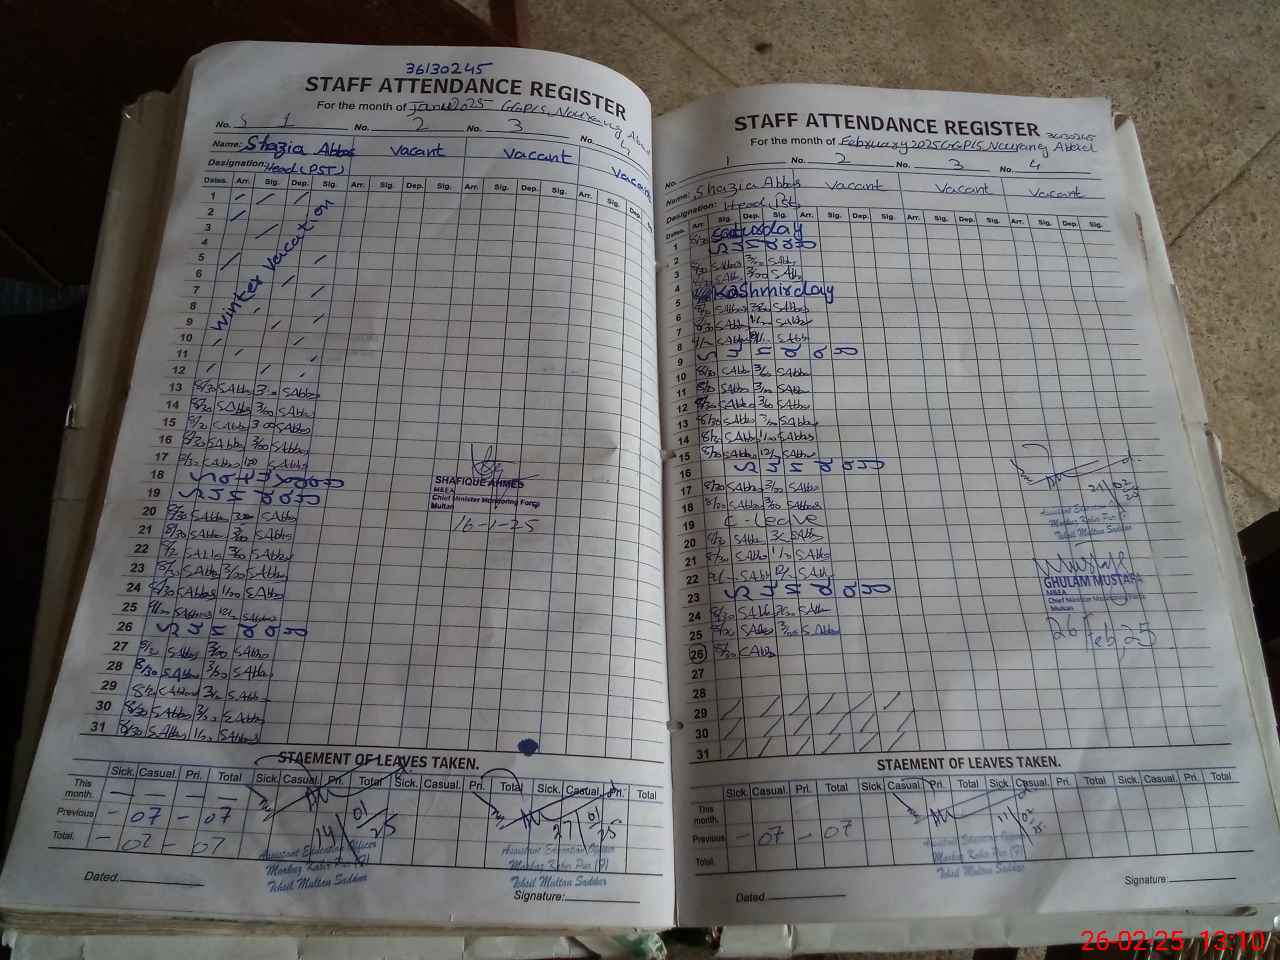 36130245
STAFF ATTENDANCE REGISTER
For the month of 2025 GGPS, Naurang Abad
No. 1 No. 2 No. 3 No. 4
Name: Shazia Abbas Vacant Vacant Vacant
Designation: Head (PST)
Dates. Arr. Sig. Dep. Sig. Arr. Sig. Dep. Sig. Arr. Sig. Dep. Sig. Sig. Dep.
1
2
3
4
5
6
7
8
9
10
11
12
Winter Vacation
13 8/30 SAbbas 3/00 SAbbas
14 8/30 SAbbas 3/00 SAbbas
15 SAbbas 3/00 SAbbas
16 8/30 SAbbas 3/00 SAbbas
17 SAbbas SAbbas
18
19 Sunday
20 8/30 SAbbas SAbbas
21 8/30 SAbbas 3/00 SAbbas
22 SAbbas 3/00 SAbbas
23 SAbbas 3/00 SAbbas
24 8/30 SAbbas 1/00 SAbbas
25 SAbbas SAbbas
26 Sunday
27 SAbbas 3/00 SAbbas
28 8/30 SAbbas 3/00 SAbbas
29 SAbbas SAbbas
30 8/30 SAbbas SAbbas
31 8/30 SAbbas SAbbas
SHAFIQUE AHMED
MEEA
Chief Minister Monitoring Force
Multan
16-1-25
STAEMENT OF LEAVES TAKEN.
Sick. Casual. Pri. Total Sick. Casual. Pri. Total Sick. Casual. Pri. Total Sick. Casual. Pri. Total
This month. — — — —
Previous - 07 - 07
Total. - 07 - 07
14/01/25
27/01/25
Assistant Education Officer
Markaz Kabir Pur (F)
Tehsil Multan Saddar
Assistant Education Officer
Markaz Kabir Pur (F)
Tehsil Multan Saddar
Dated.
Signature:
STAFF ATTENDANCE REGISTER
36130245
For the month of February 2025 GGPS, Naurang Abad
No. 1 No. 2 No. 3 No. 4
Name: Shazia Abbas Vacant Vacant Vacant
Designation: Head Pst
Dates. Arr. Sig. Dep. Sig. Arr. Sig. Dep. Sig. Arr. Sig. Dep. Sig. Arr. Sig. Dep. Sig.
1 Saturday
2 Sunday
3 8/30 SAbbas 3/00 SAbbas
4 SAbbas 3/00 SAbbas
5 Kashmir day
6 SAbbas SAbbas
7 8/30 SAbbas SAbbas
8 SAbbas SAbbas
9 Sunday
10 8/30 SAbbas SAbbas
11 8/30 SAbbas 3/00 SAbbas
12 8/30 SAbbas 3/00 SAbbas
13 8/30 SAbbas 3/00 SAbbas
14 8/30 SAbbas 1/00 SAbbas
15 8/30 SAbbas SAbbas
16 Sunday
17 8/30 SAbbas 3/00 SAbbas
18 8/30 SAbbas 3/00 SAbbas
19 C-Leave
20 8/30 SAbbas SAbbas
21 8/30 SAbbas SAbbas
22 SAbbas SAbbas
23 Sunday
24 8/30 SAbbas SAbbas
25 SAbbas 3/00 SAbbas
26 8/30 SAbbas
27
28
29
30
31
Assistant Education
Markaz Kabir Pur (F)
Tehsil Multan Saddar
GHULAM MUSTAFA
MEEA
Chief Minister Monitoring Force
Multan
26 Feb 25
STAEMENT OF LEAVES TAKEN.
Sick. Casual. Pri. Total Sick. Casual. Pri. Total Sick. Casual. Pri. Total Sick. Casual. Pri. Total
This month.
Previous - 07 - 07
Total.
11/02/25
Assistant Education Officer
Markaz Kabir Pur (F)
Tehsil Multan Saddar
Dated
Signature:
26-02-25 13:10